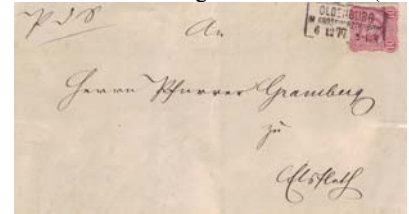 OLDENBURG
6 12 77
An
Herrn Pfarrer Gramberg
zu
Elsfleth